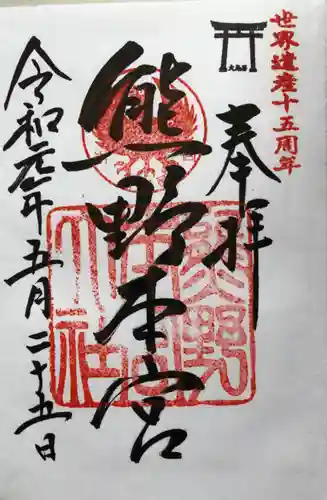 世界遺産十五周年
奉拝
熊野本宮
令和元年五月二十五日